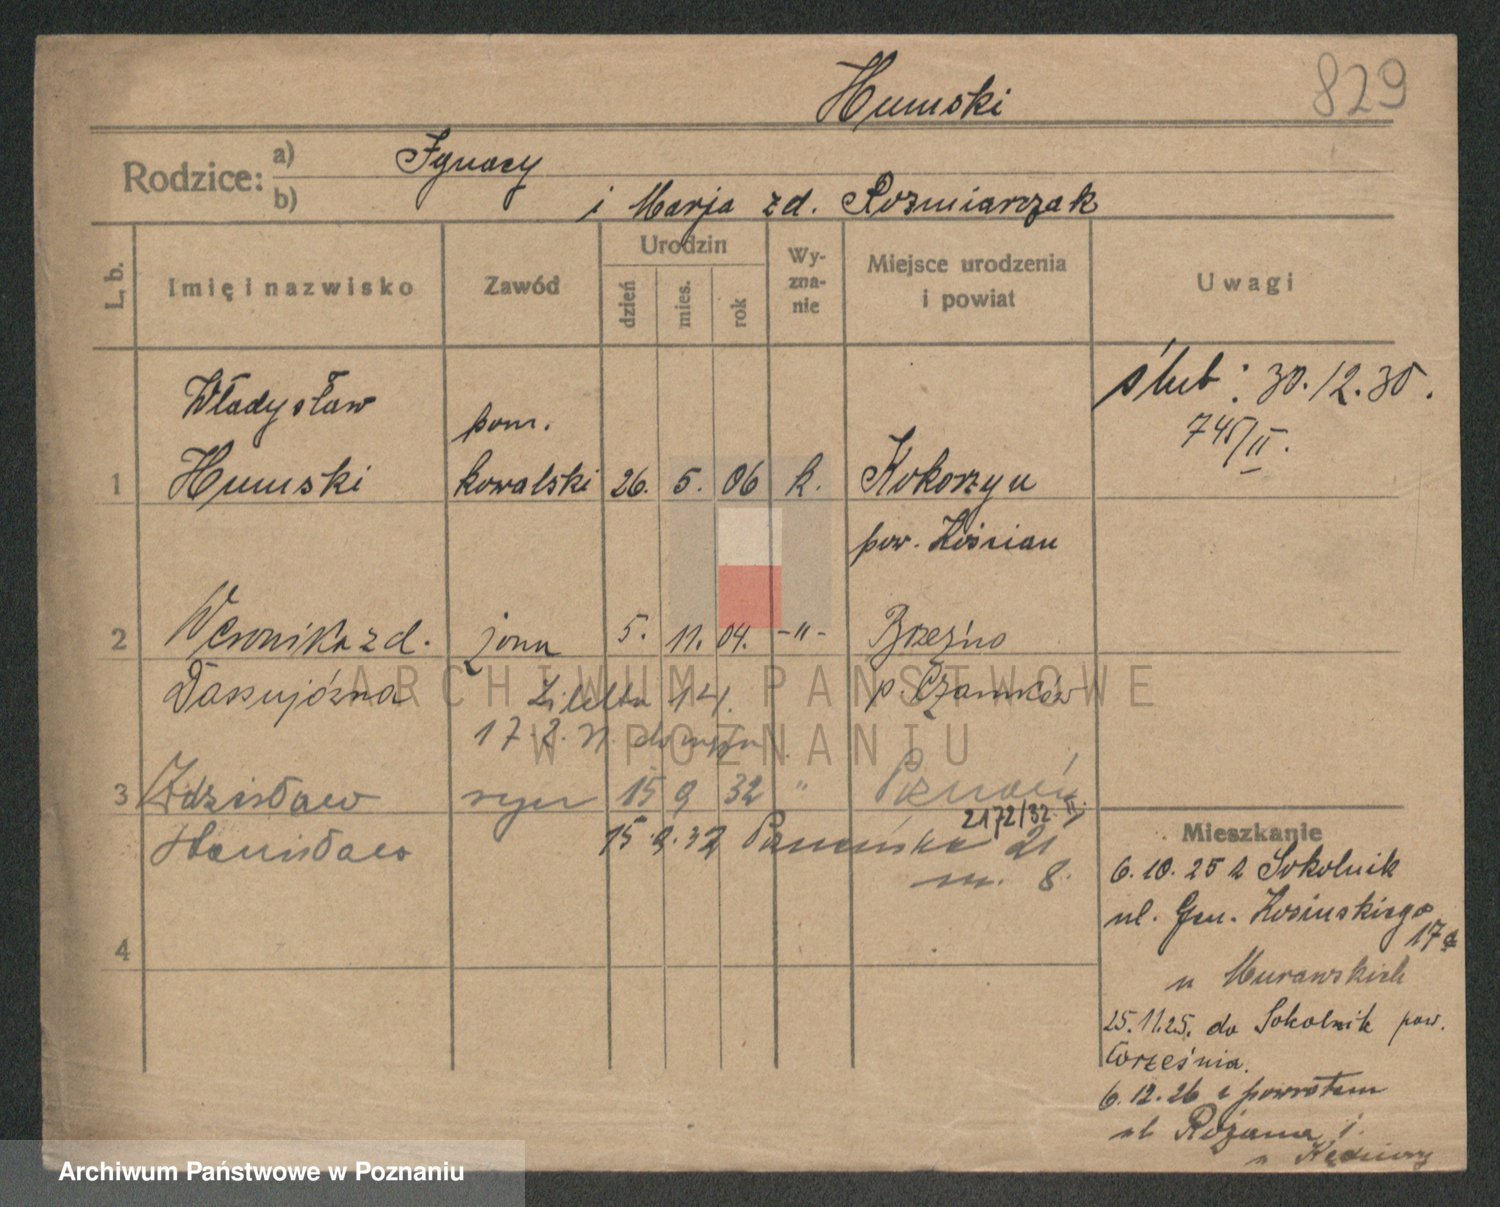 829
Humski
Rodzice:
a) Ignacy
b) i Marja zd. Rozmiarczak
L. b.
Imię i nazwisko
Zawód
Urodzin
dzień
mies.
rok
Wy-
zna-
nie
Miejsce urodzenia
i powiat
Uwagi
ślub: 30.12.30.
745/II.
Władysław
pom.
1 Humski kowalski 26. 5. 06 k. Kokorzyn
pow. Kościan
2 Weronika zd. żona 5. 11. 04. -"- Brzeźno
p. Czarnków
17. 2. 31 do męża
3 Zdzisław syn 15 9 32 " Poznań
2172/32 II.
Stanisław 15.9.32 21
m. 8.
4
Mieszkanie
6.10.25 z Sokolnik
ul. Gen. Kosińskiego
17a
u Murawskich
25.11.25. do Sokolnik pow.
Września.
6.12.26 z powrotem
ul. Różana
ARCHIWUM PAŃSTWOWE
W POZNANIU
Archiwum Państwowe w Poznaniu